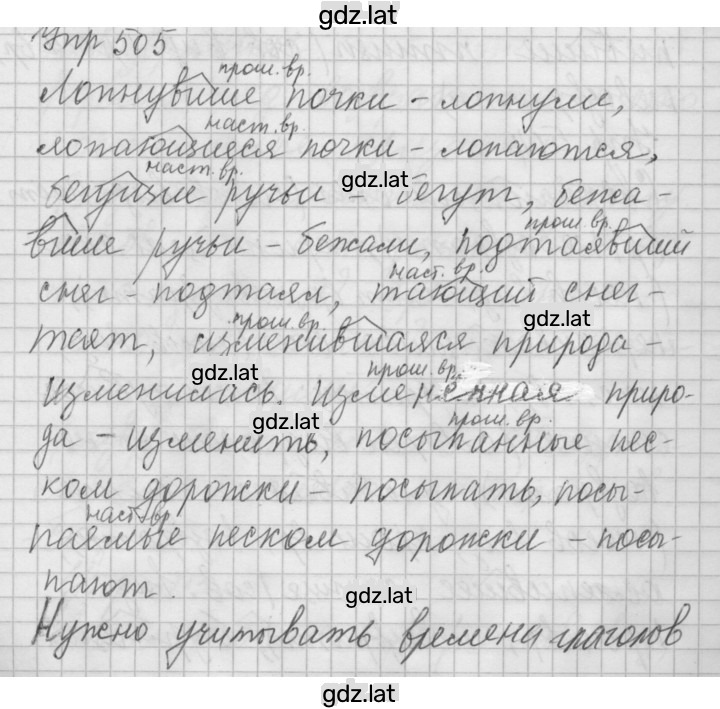 gdz.lat
Упр 505
прош.вр.
Лопнувшие почки - лопнули,
наст.вр.
лопающиеся почки - лопаются,
наст.вр.
gdz.lat
бегущие ручьи - бегут, бежа-
прош.вр.
вшие ручьи - бежали, подтаявший
наст.вр.
снег - подтаял, тающий снег -
прош.вр.
gdz.lat
таят, изменившаяся природа -
gdz.lat
прош.вр.
изменилась. Измененная приро-
gdz.lat
прош.вр.
да - изменить, посыпанные пес-
ком дорожки - посыпать, посы-
наст.вр
паемые песком дорожки - посы-
пают.
gdz.lat
Нужно учитывать времена глаголов
gdz.lat